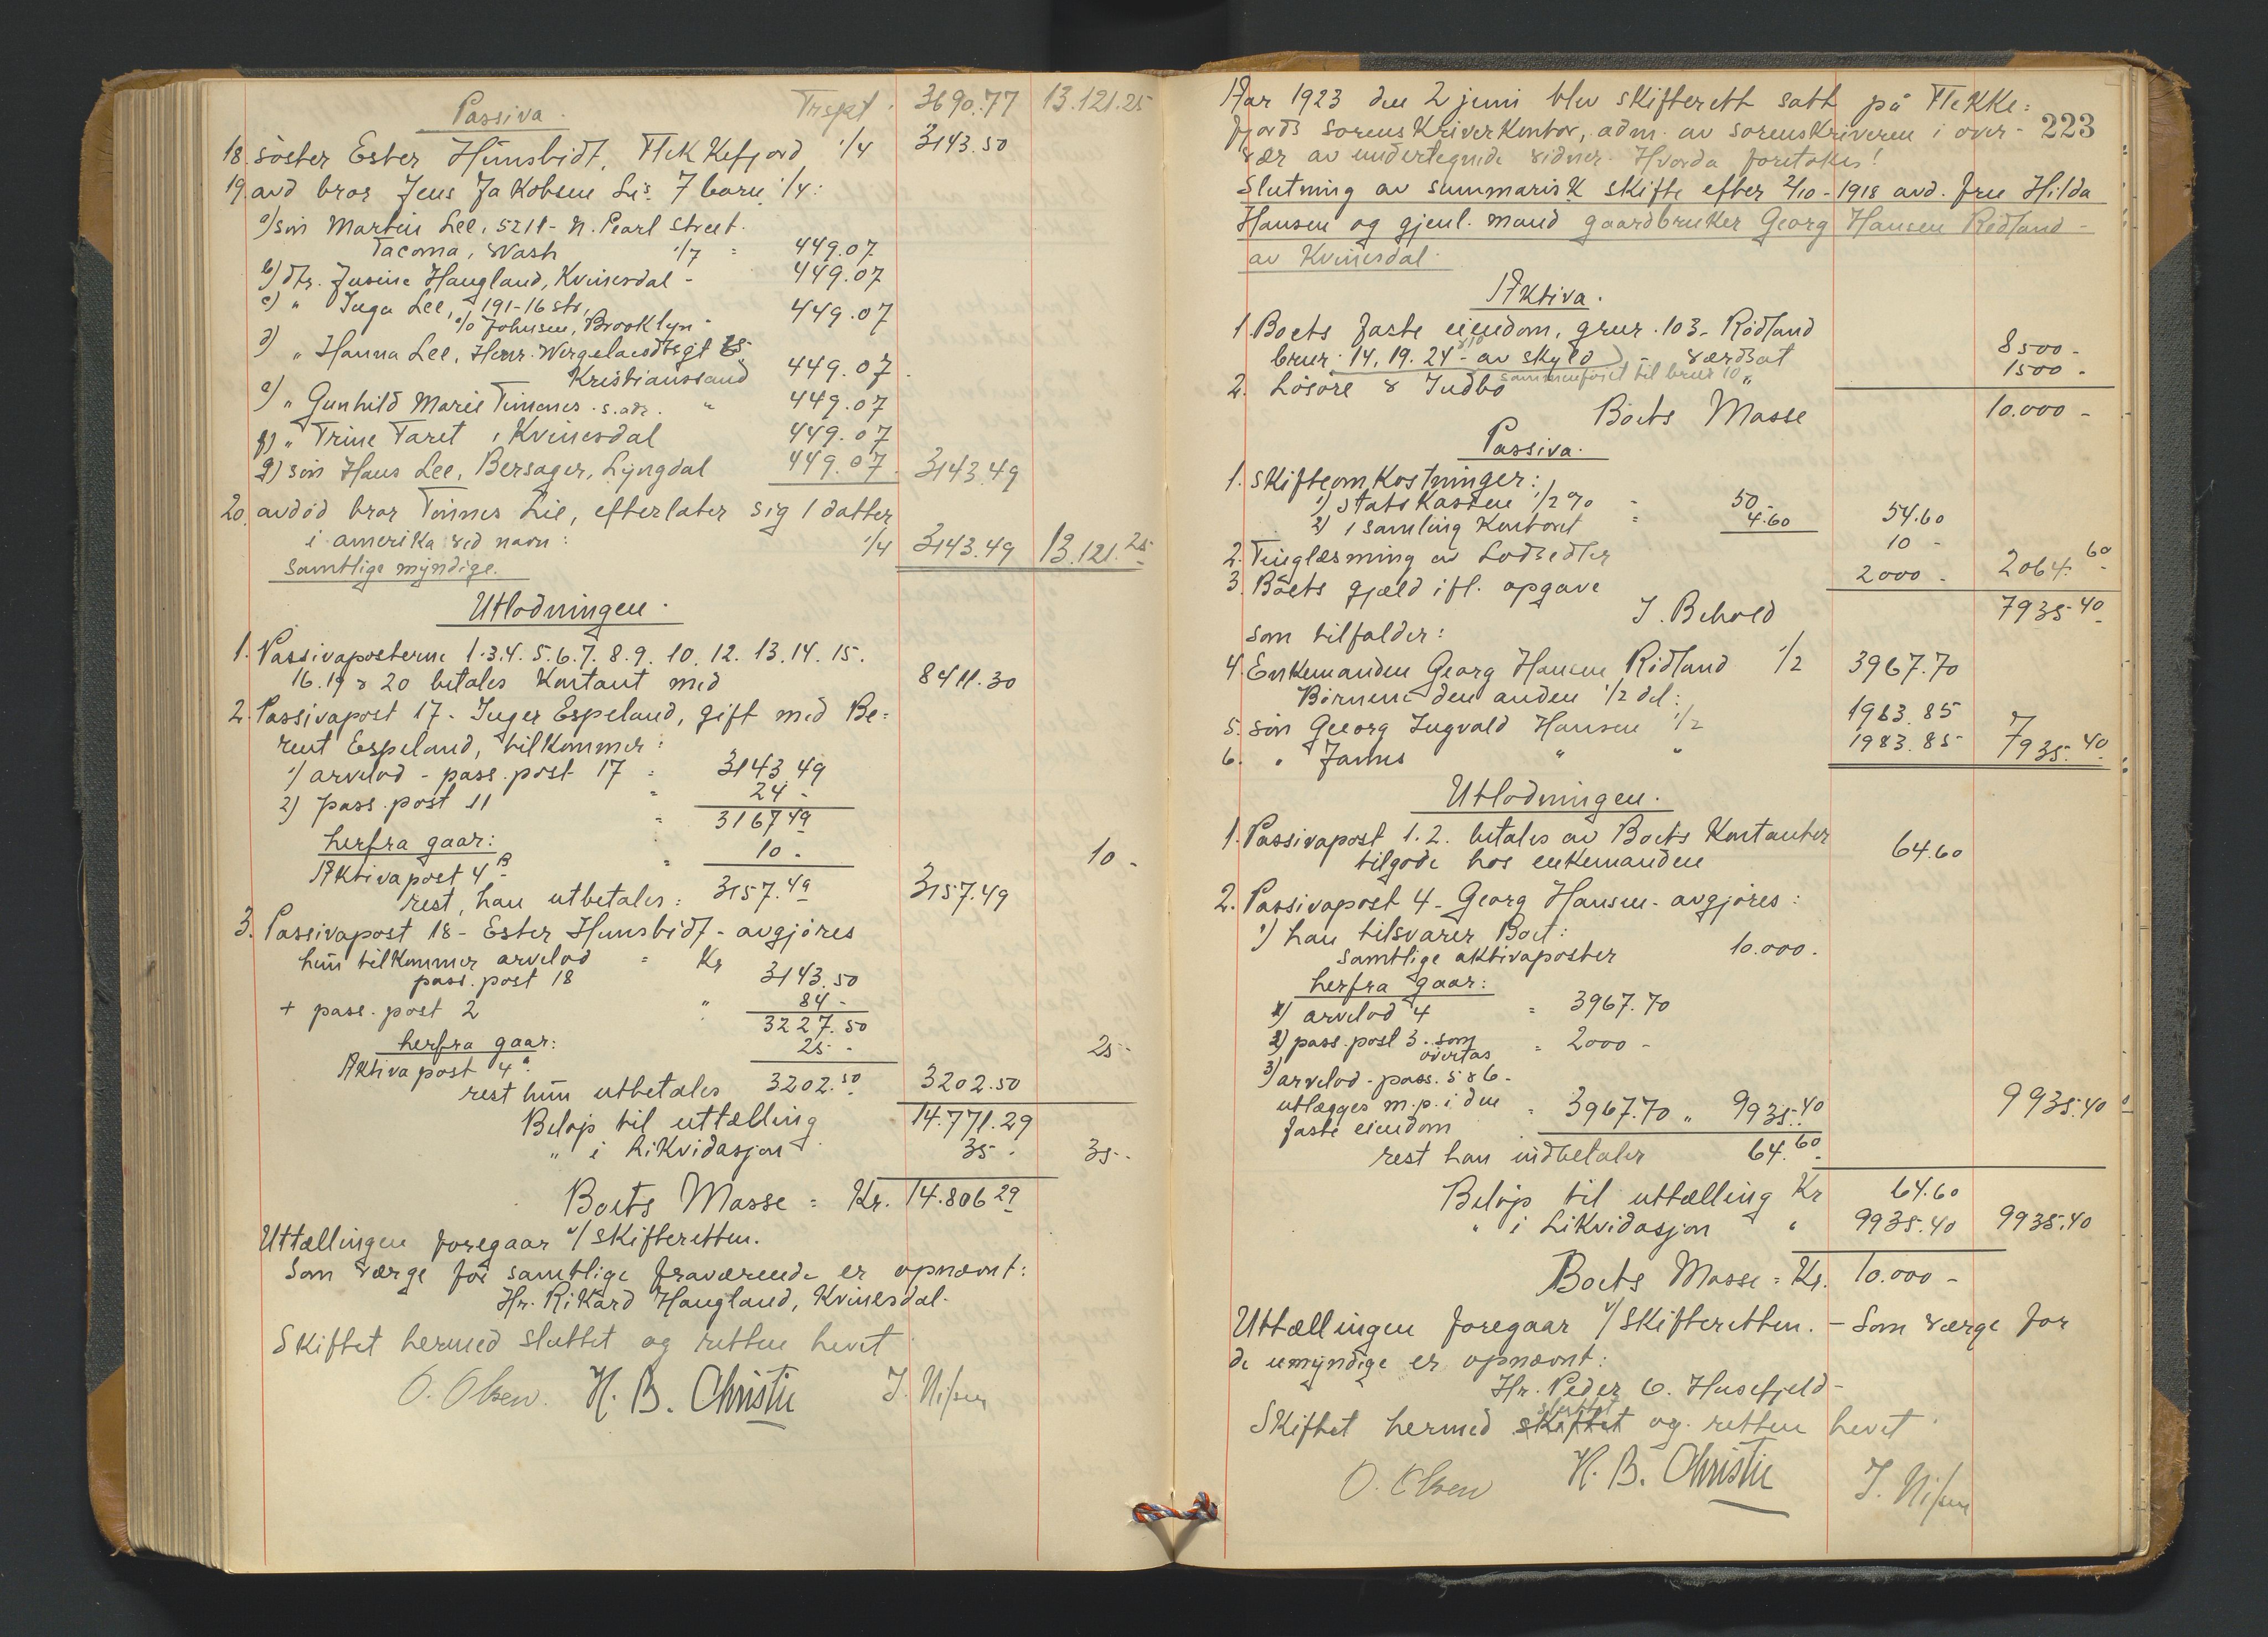 Passiva. Trspt. 3690.77 13.121.25
18. söster Ester Hunsbidt, Flekkefjord 1/4 3143.50
19. avd bror Jens Jakobsen Lis 7 barn 1/4:
a) sön Martin Lee, 5211- N. Pearl Street.
Tacoma, Wash 1/7 = 449.07
b) dtr. Jusine Haugland, Kvinesdal - 449.07
c) " Inga Lee, 191-16 str,
c/o Johnsen, Brooklyn - 449.07
d) " Hanna Lee, Henr. Wergelandsgt
Kristianssand 449.07
e) " Gunhild Marie Timenes . s. adr. " 449.07
f) " Trine Faret, Kvinesdal 449.07
g) sön Hans Lee, Bersager, Lyngdal 449.07. 3143.49
20. avdöd bror Tönnes Lie, efterlater sig 1 datter
i amerika ved navn: 1/4 3143.49 13.121.25
Samtlige myndige.
Utlodningen.
1. Passivaposterne 1.3.4. 5.6.7. 8.9. 10. 12. 13. 14. 15.
16. 19 & 20 betales Kontant med 8411.30
2. Passivapost 17 - Inger Espeland, gift med Be=
rent Espeland, tilkommer:
1) arvelod - pass. post 17 = 3143.49
2) pass. post 11 = 24 -
= 3167.49
herfra gaar:
Aktivapost 4 B = 10 - 10 -
rest, han utbetales: 3157.49 3157.49
3. Passivapost 18 - Ester Hunsbidt - avgjöres
hun tilkommer arvelod = Kr
pass. post 18 3143.50
+ pass. post 2 " 84 -
3227.50
herfra gaar: 25 - 25 -
Aktivapost 4 a.
rest hun utbetales 3202.50 3202.50
Belöp til uttælling 14.771.29
" i Likvidasjon 35 - 35 -
Boets Masse = Kr. 14.806 29
Uttællingen foregaar v/ skifteretten.
Som værge for samtlige fraværende er opnævnt:
Hr. Rikard Haugland, Kvinesdal.
Skiftet hermed sluttet og retten hevet
O. Olsen. H. B. Christie J. Nilsen
Aar 1923 den 2 juni blev skifterett satt på Flekke=
fjords Sorenskriverkontor, adm. av sorenskriveren i over- 223
vær av undertegnede vidner. Hvorda foretokes!
Slutning av summarisk skifte efter 2/10 - 1918 avd. fru Hilda
Hansen og gjenl. mand gaardbruker Georg Hansen Rødland -
av Kvinesdal.
Aktiva.
1. Boets faste eiendom, gnr. 103 - Rødland
brnr. 14, 19. 24 - av skyld - værdsat 8500 -
sammenføiet til brnr 10
2. Løsøre & Indbo " 1500 -
Boets Masse 10.000 -
Passiva.
1. Skifteomkostninger:
1) statskassen 1/2 % = 50 -
2) 1 samling Kontoret = 4.60 54.60
2. Tinglæsning av Lodsedler 10 -
3. Boets gjæld ifl. opgave 2000 - 2064.60
I. Behold 7935.40
som tilfalder:
4. Enkemanden Georg Hansen Rødland 1/2 3967.70
Börnene den anden 1/2 del:
5. sön Georg Ingvald Hansen 1/2 1983.85
6. " " " 1983.85 7935.40
Utlodningen.
1. Passivapost 1.2. betales av Boets Kontanter
tilgode hos enkemanden 64.60
2. Passivapost 4 - Georg Hansen - avgjöres:
1) han tilsvarer Boet:
samtlige aktivaposter 10.000.
herfra gaar:
1) arvelod 4 = 3967.70
2) pass. post 3. som
overtas = 2000 -
3) arvelod - pass. 5 & 6 -
utlægges m. p. i den
faste eiendom = 3967.70 " 9935.40 9935.40
rest han indbetaler 64.60
Belöp til uttælling Kr 64.60
" i Likvidasjon " 9935.40 9935.40
Boets Masse = Kr. 10.000 -
Uttællingen foregaar v/ Skifteretten. - Som værge for
de umyndige er opnævnt:
Hr. Peder O. Husefjeld -
sluttet
Skiftet hermed skiftet og retten hevet
O. Olsen H. B. Christie J. Nilsen